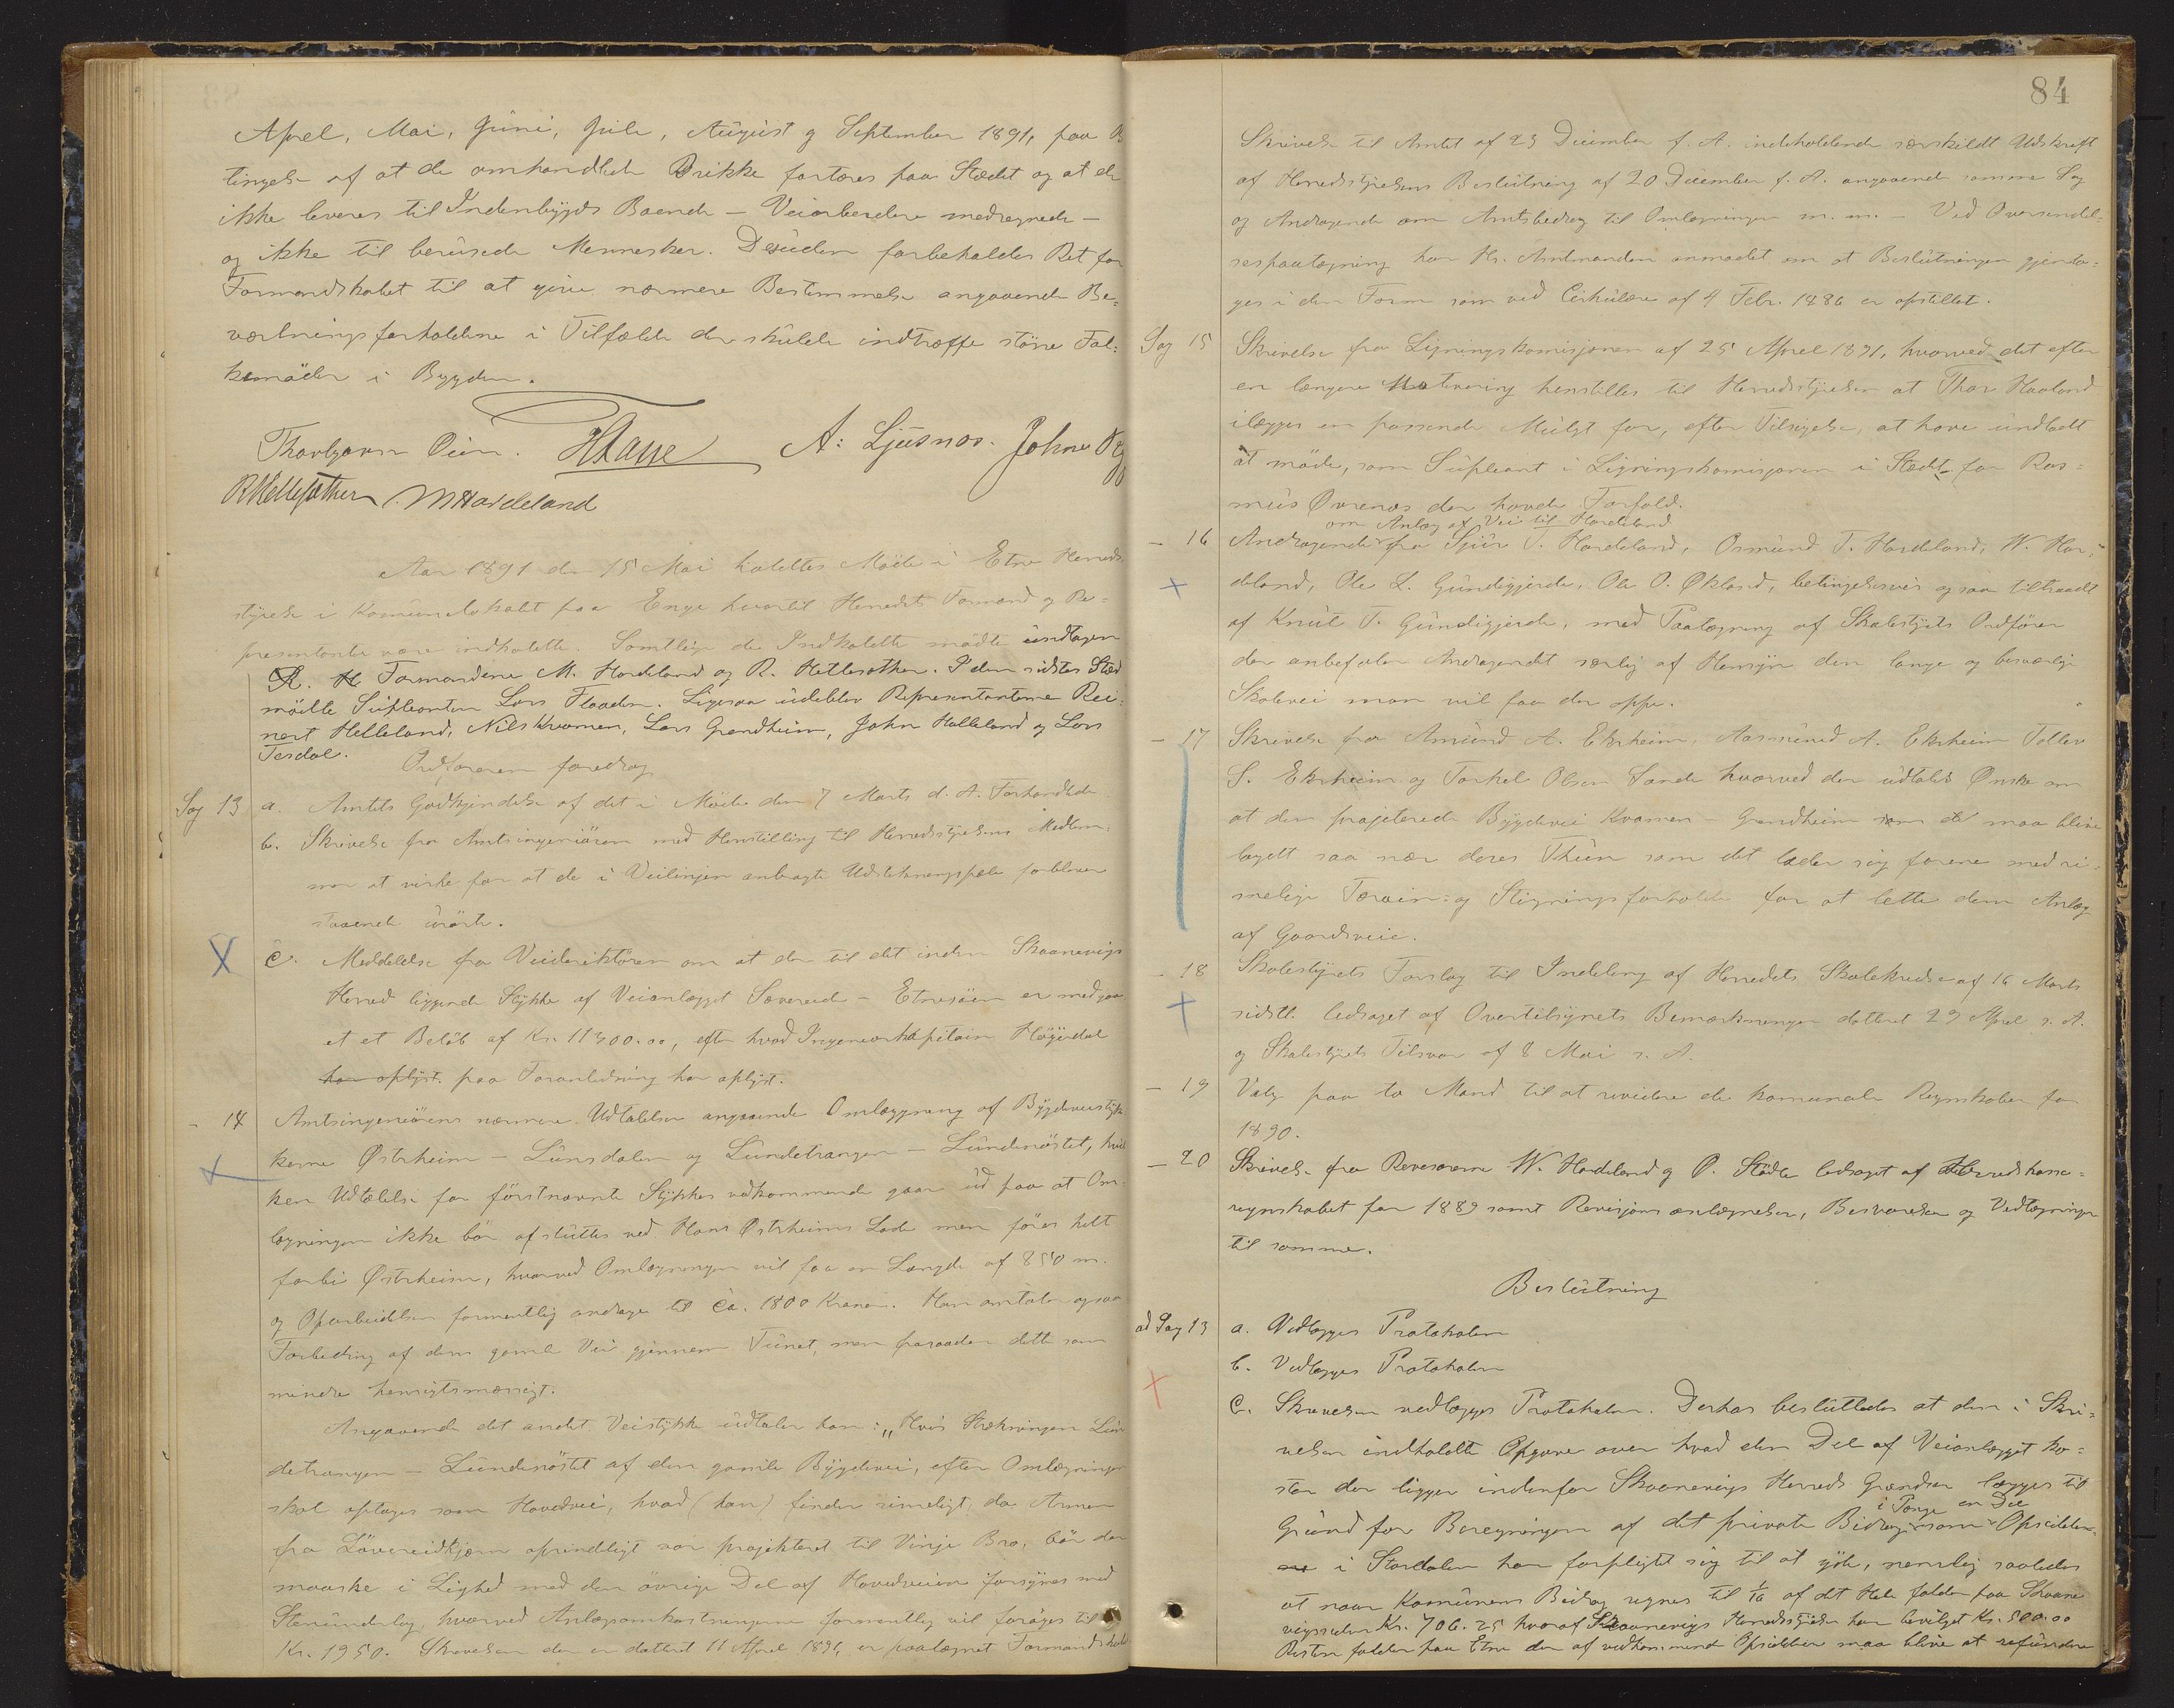 Aprel, Mai, Juni, Juli, August og September 1891, paa B
tingelse af at de omhandlede Drikke fortæres paa Stædet og at de
ikke leveres til Indenbygds Boende – Veiarbeidere medregnede –
og ikke til berusede Mennesker. Desuden forbeholdes Ret for
Formandskabet til at give nærmere Bestemmelse angaaende Be=
værtningsforholdene i Tilfælde der skulde indtræffe större Fol:
kemöder i Bygden.
Thorbjørn Øien. HAase A: Ljusnos. Johne
R Hettesæther. M Hardeland
Aar 1891 den 15 Mai holdtes Möde i Etne Herreds
styrelse i Komunelokalet paa Enge hvortil Herredets Formænd og Re=
presentanter vare indkaldte. Samtlige de Indkaldte mödte undtagen
A. H Formændene M. Hardeland og R. Hettesæther. I den sidstes Sted
mödte Supleanten Lars Flaaden. Ligesaa udeblev Representanterne Rei:
nert Helleland, Nils Kvamen, Lars Grandheim, John Halleland og Lars
Tesdal.
Ordföreren foredrog
Sag 13 a. Amtets Godkjendelse af det i Möde den 7 Marts d. A. Forhandlede
b. Skrivelse fra Amtsingeniören med Henstilling til Herredstyrelsens Medlem:
mer at virke for at de i Veilinjen anbragte Udstikningspæle forbliver
staaende urörte.
c. Meddelelse fra Veidirektören om at der til det inden Skaanevigs
Herred liggende Stykke af Veianlægget Sævereid – Etnesöen er medgaa
et et Beløb af Kr. 11300.00, efter hvad Ingeniørkapitain Høgerdal
har oplyst. paa Foranledning har oplyst.
– 14 Amtsingeniörens nærmere Udtalelser angaaende Omlægning af Bygdeveistyk
kerne Østrheim – Lunsdalen og Lundetrangen – Lundenöstet, hvil
ken Udtalelse for förstnævnte Stykkes vedkommende gaar ud paa at Om:
lægningen ikke bör afsluttes ved Hans Østrheims Lade men föres helt
forbi Østrheim, hvorved Omlægningen vil faa en Længde af 850 m.
og Oparbeidelsen formentlig andrage til ca. 1800 Kroner. Han omtaler ogsaa
Forbedring af den gamle Vei gjennem Tunet, men fraraader dette som
mindre hensigtsmæssigt.
Angaaende det andet Veistykke udtaler han: „Hvis Strækningen Lun
detrangen – Lundenöstet af den gamle Bygdevei, efter Omlægningen
skal optages som Hovedvei, hvad (han) finder rimeligt, da Armen
fra Lövereidkjærn oprindeligt var projekteret til Vinje Bro, bör den
maaske i Lighed med den övrige Del af Hovedveien forsynes med
Stenunderlag, hvorved Anlægsomkostningerne formentlig vil forøges til
Kr. 1950. Skrivelsen der er datteret 11 Aprel 1891, er paategnet Formandskab
84
Skrivelse til Amtet af 23 December f. A. indeholdende særskildt Udskrift
af Herredsstyrelsens Beslutning af 20 December f. A. angaaende samme Sag
og Andragende om Amtsbidrag til Omlægningen m. m. – Ved Oversendel=
sespaategning har Hr. Amtmanden anmodet om at Beslutningen gjenta=
ges i den Form som ved Cirkulære af 4 Febr. 1886 er opstillet.
Sag 15 Skrivelse fra Ligningskomisjonen af 25 Aprel 1891, hvorved det efter
en længere Motivering henstilles til Herredsstyrelsen at Thor Haaland
ilægges en passende Mulgt for, efter Tilsigelse, at have undladt
at möde, som Supleant i Ligningskomisjonen i Stedt for Ras=
mus Øvrenæs der havde Forfald.
om Anlæg af Vei til Hardeland
– 16 Andragende fra Sjur T. Hardeland, Osmund T. Hardeland, W. Har:
deland, Ole L. Gundegjerde, Ole O. Økland, betingelsesvis ogsaa tiltraadt
af Knut T. Gundigjerde, med Paategning af Skolestyrets Ordförer
der anbefaler Andragendet særlig af Hensyn den lange og besværlige
Skolevei man vil faa der oppe.
– 17 Skrivelse fra Amund A. Ekrheim, Aasmund A. Ekrheim Tollev
S. Ekrheim og Torkel Olsen Sande hvorved der udtales Ønske om
at den projeterede Bygdevei Kvamen – Grandheim som det maa blive
lagdt saa nær deres Thun som det lader sig forene med ri=
melige Terræin: og Stigningsforholde for at lette dem Anlæg
af Gaardsveie.
– 18 Skolestyrets Forslag til Inddeling af Herredets Skolekredse af 16 Marts
sidstl. ledsaget af Overtilsynets Bemærkninger datteret 29 Aprel s. A.
og Skolestyrets Tilsvar af 8 Mai s. A.
– 19 Valg paa to Mand til at revidere de komunale Regnskaber for
1890.
– 20 Skrivelse fra Revisorerne W. Hardeland og O. Städle ledsaget af Herredskasse=
regnskabet for 1889 samt Revisjonsantegnelser, Besvarelser og Vedtegninger
til samme.
Beslutning
ad Sag 13 a. Vedlægges Protokolen
b. Vedlægges Protokolen
c. Skrivelsen vedlægges Protokolen. Derhos besluttedes at den i Skri=
velsen indholdte Opgave over hvad den Del af Veianlægget ko=
ster der ligger indenfor Skaanevigs Herreds Grændser lægges til
Grund for Beregningen af det private Bidrag i Penge som en Del Opsiddere
ne i Stordalen har forpligtet sig til at yde, nemlig saaledes
at naar Komunens Bidrag regnes til 1/16 af det Hele falder paa Skaane
vigssiden Kr. 706.25 hvoraf Skaanevigs Herredsstyrelse har bevilget Kr. 500.00
Resten falder paa Etne der af vedkommende Opsiddere maa blive at refundere